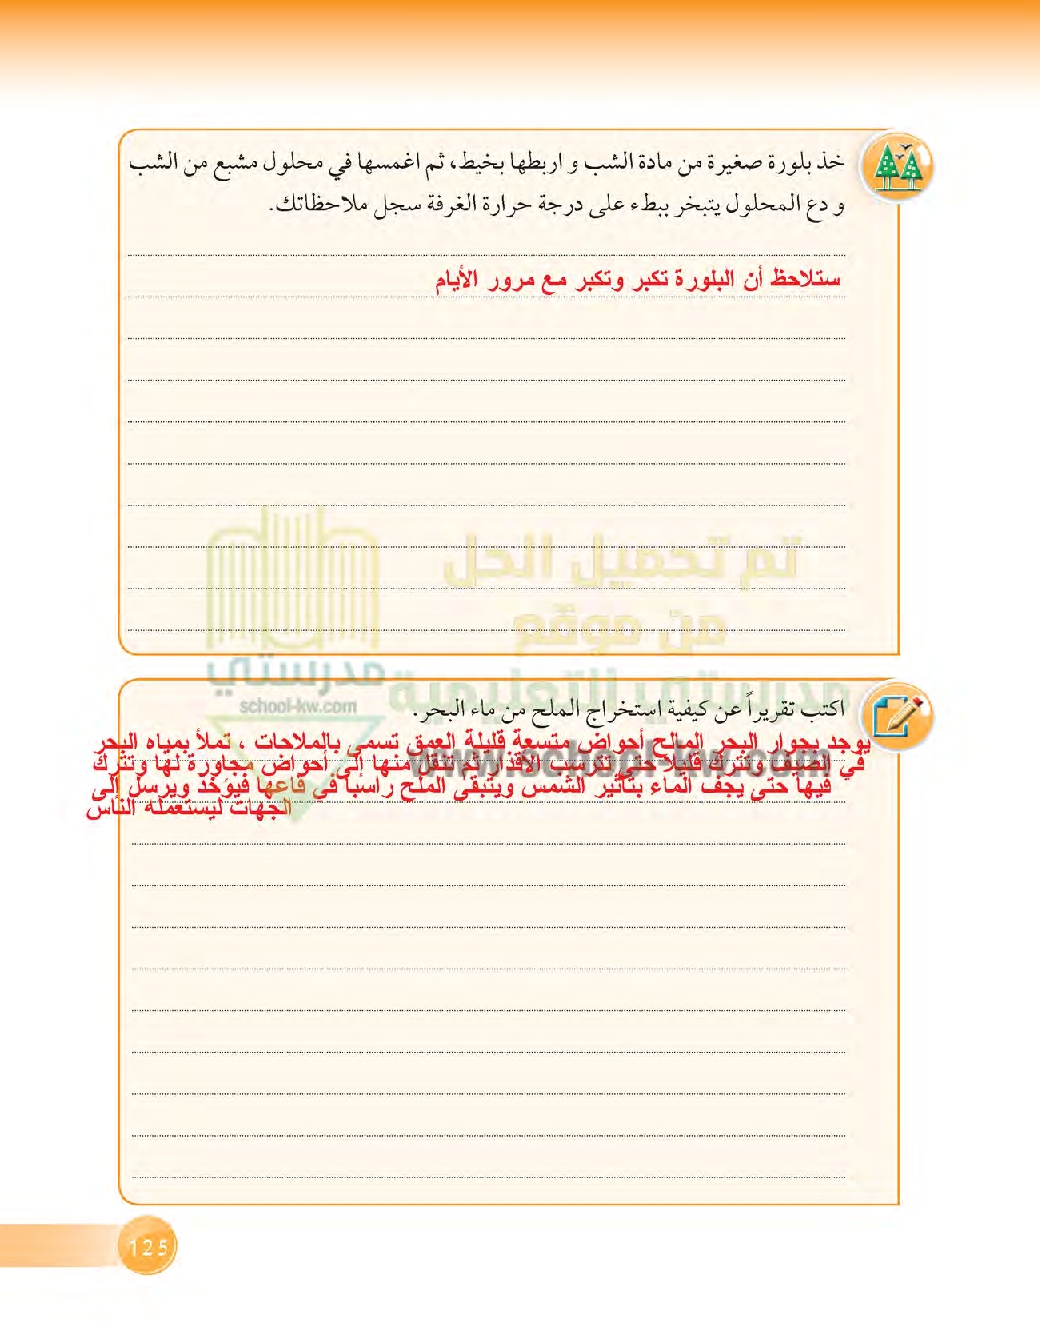 خذ بلورة صغيرة من مادة الشب و اربطها بخيط، ثم اغمسها في محلول مشبع من الشب
و دع المحلول يتبخر ببطء على درجة حرارة الغرفة سجل ملاحظاتك.
ستلاحظ أن البلورة تكبر وتكبر مع مرور الأيام
تم تحميل الحل
من موقع
مدرستي التعليمية
مدرستي
school-kw.com
اكتب تقريراً عن كيفية استخراج الملح من ماء البحر.
يوجد بجوار البحر المالح أحواض متسعة قليلة العمق تسمى بالملاحات ، تملأ بمياه البحر
في الصيف وتترك قليلا حتى تترسب الأقذار ثم تنقل منها إلى أحواض مجاورة لها وتترك
www.school-kw.com
فيها حتى يجف الماء بتأثير الشمس ويتبقى الملح راسبا في قاعها فيؤخذ ويرسل إلى
الجهات ليستعمله الناس
125